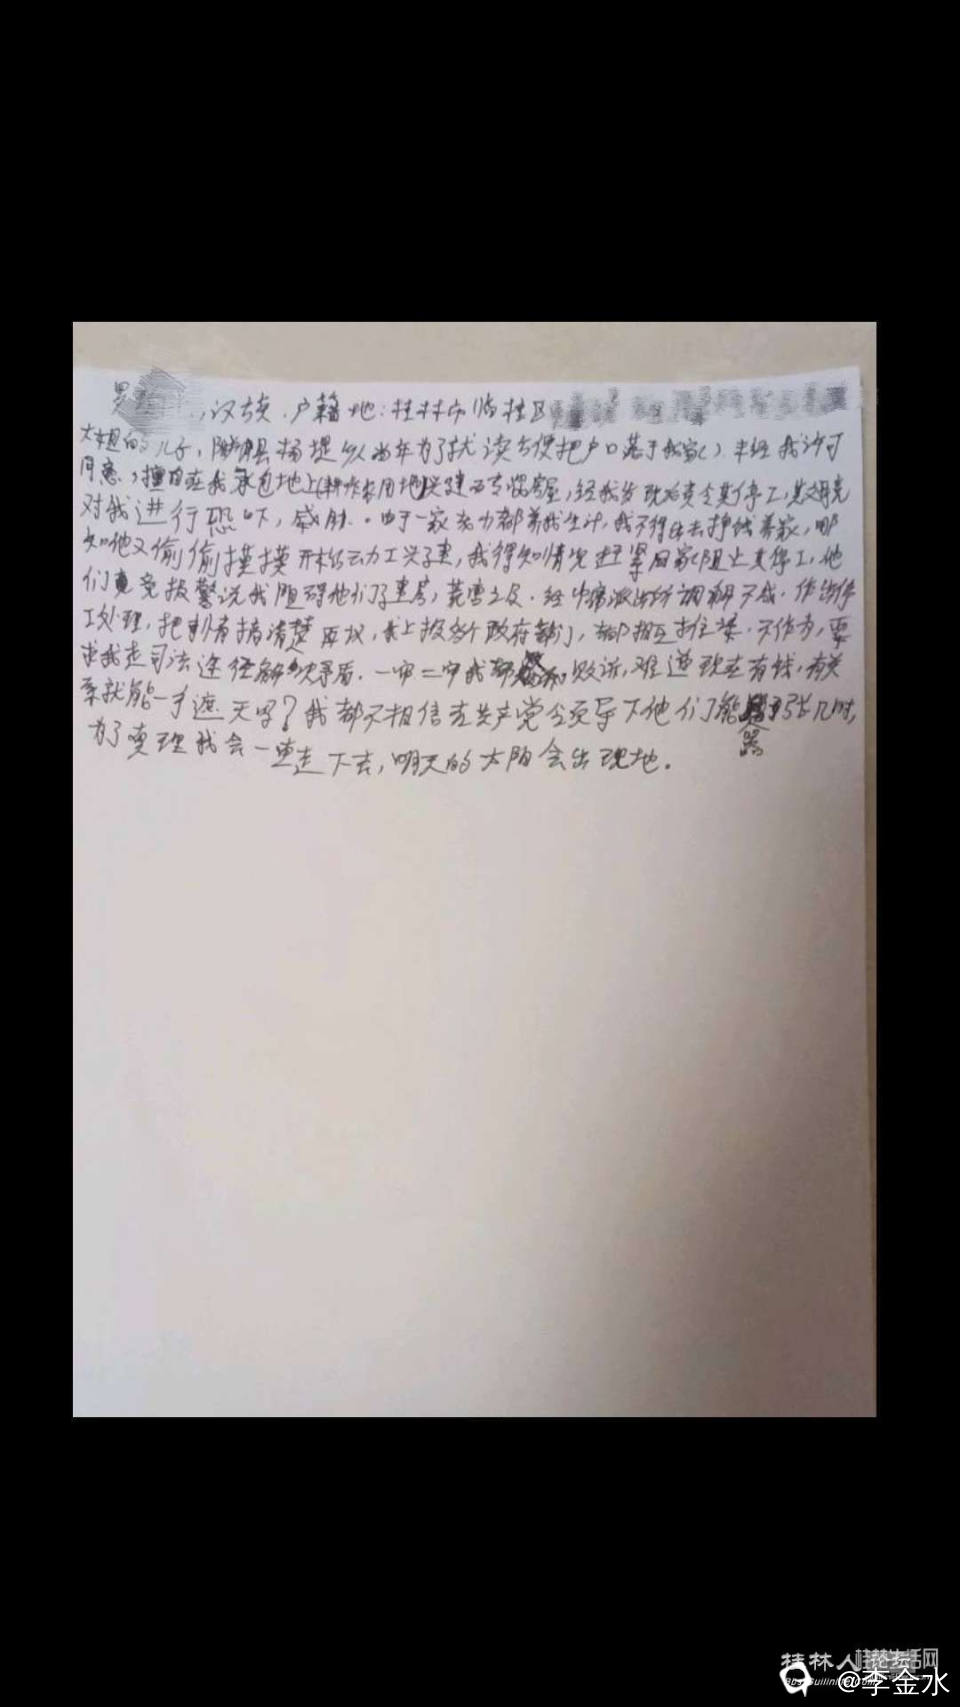 罗，汉族．户籍地：桂林市临桂区
大姐的儿子，阳朔县杨堤乡人当年为了就读方便把户口落于我家），未经我许可
同意，擅自在我承包地上（耕作农用地）兴建砖房屋，经我发现责令其停工，其竟
对我进行恐吓，威胁．由于一家老力都靠我生计，我不得出去挣钱养家，哪
知他又偷偷摸摸开始动工兴建，我得知情况赶紧回家阻止其停工，他
们竟竞报警说我阻碍他们了建房，荒唐之及．经派出所调解不成．作出停
工处理，把事情搞清楚再议，我上报各个政府部门，都相互推，不作为，要
求我走司法途径解决矛盾．一审二审我都败诉，难道现在有钱，有关
系就能一手遮天吗？我都不相信在共产党领导下他们能嚣张几时，
为了真理我会一直走下去，明天的太阳会出现地．
桂林人论坛
桂林生活网
@李金水